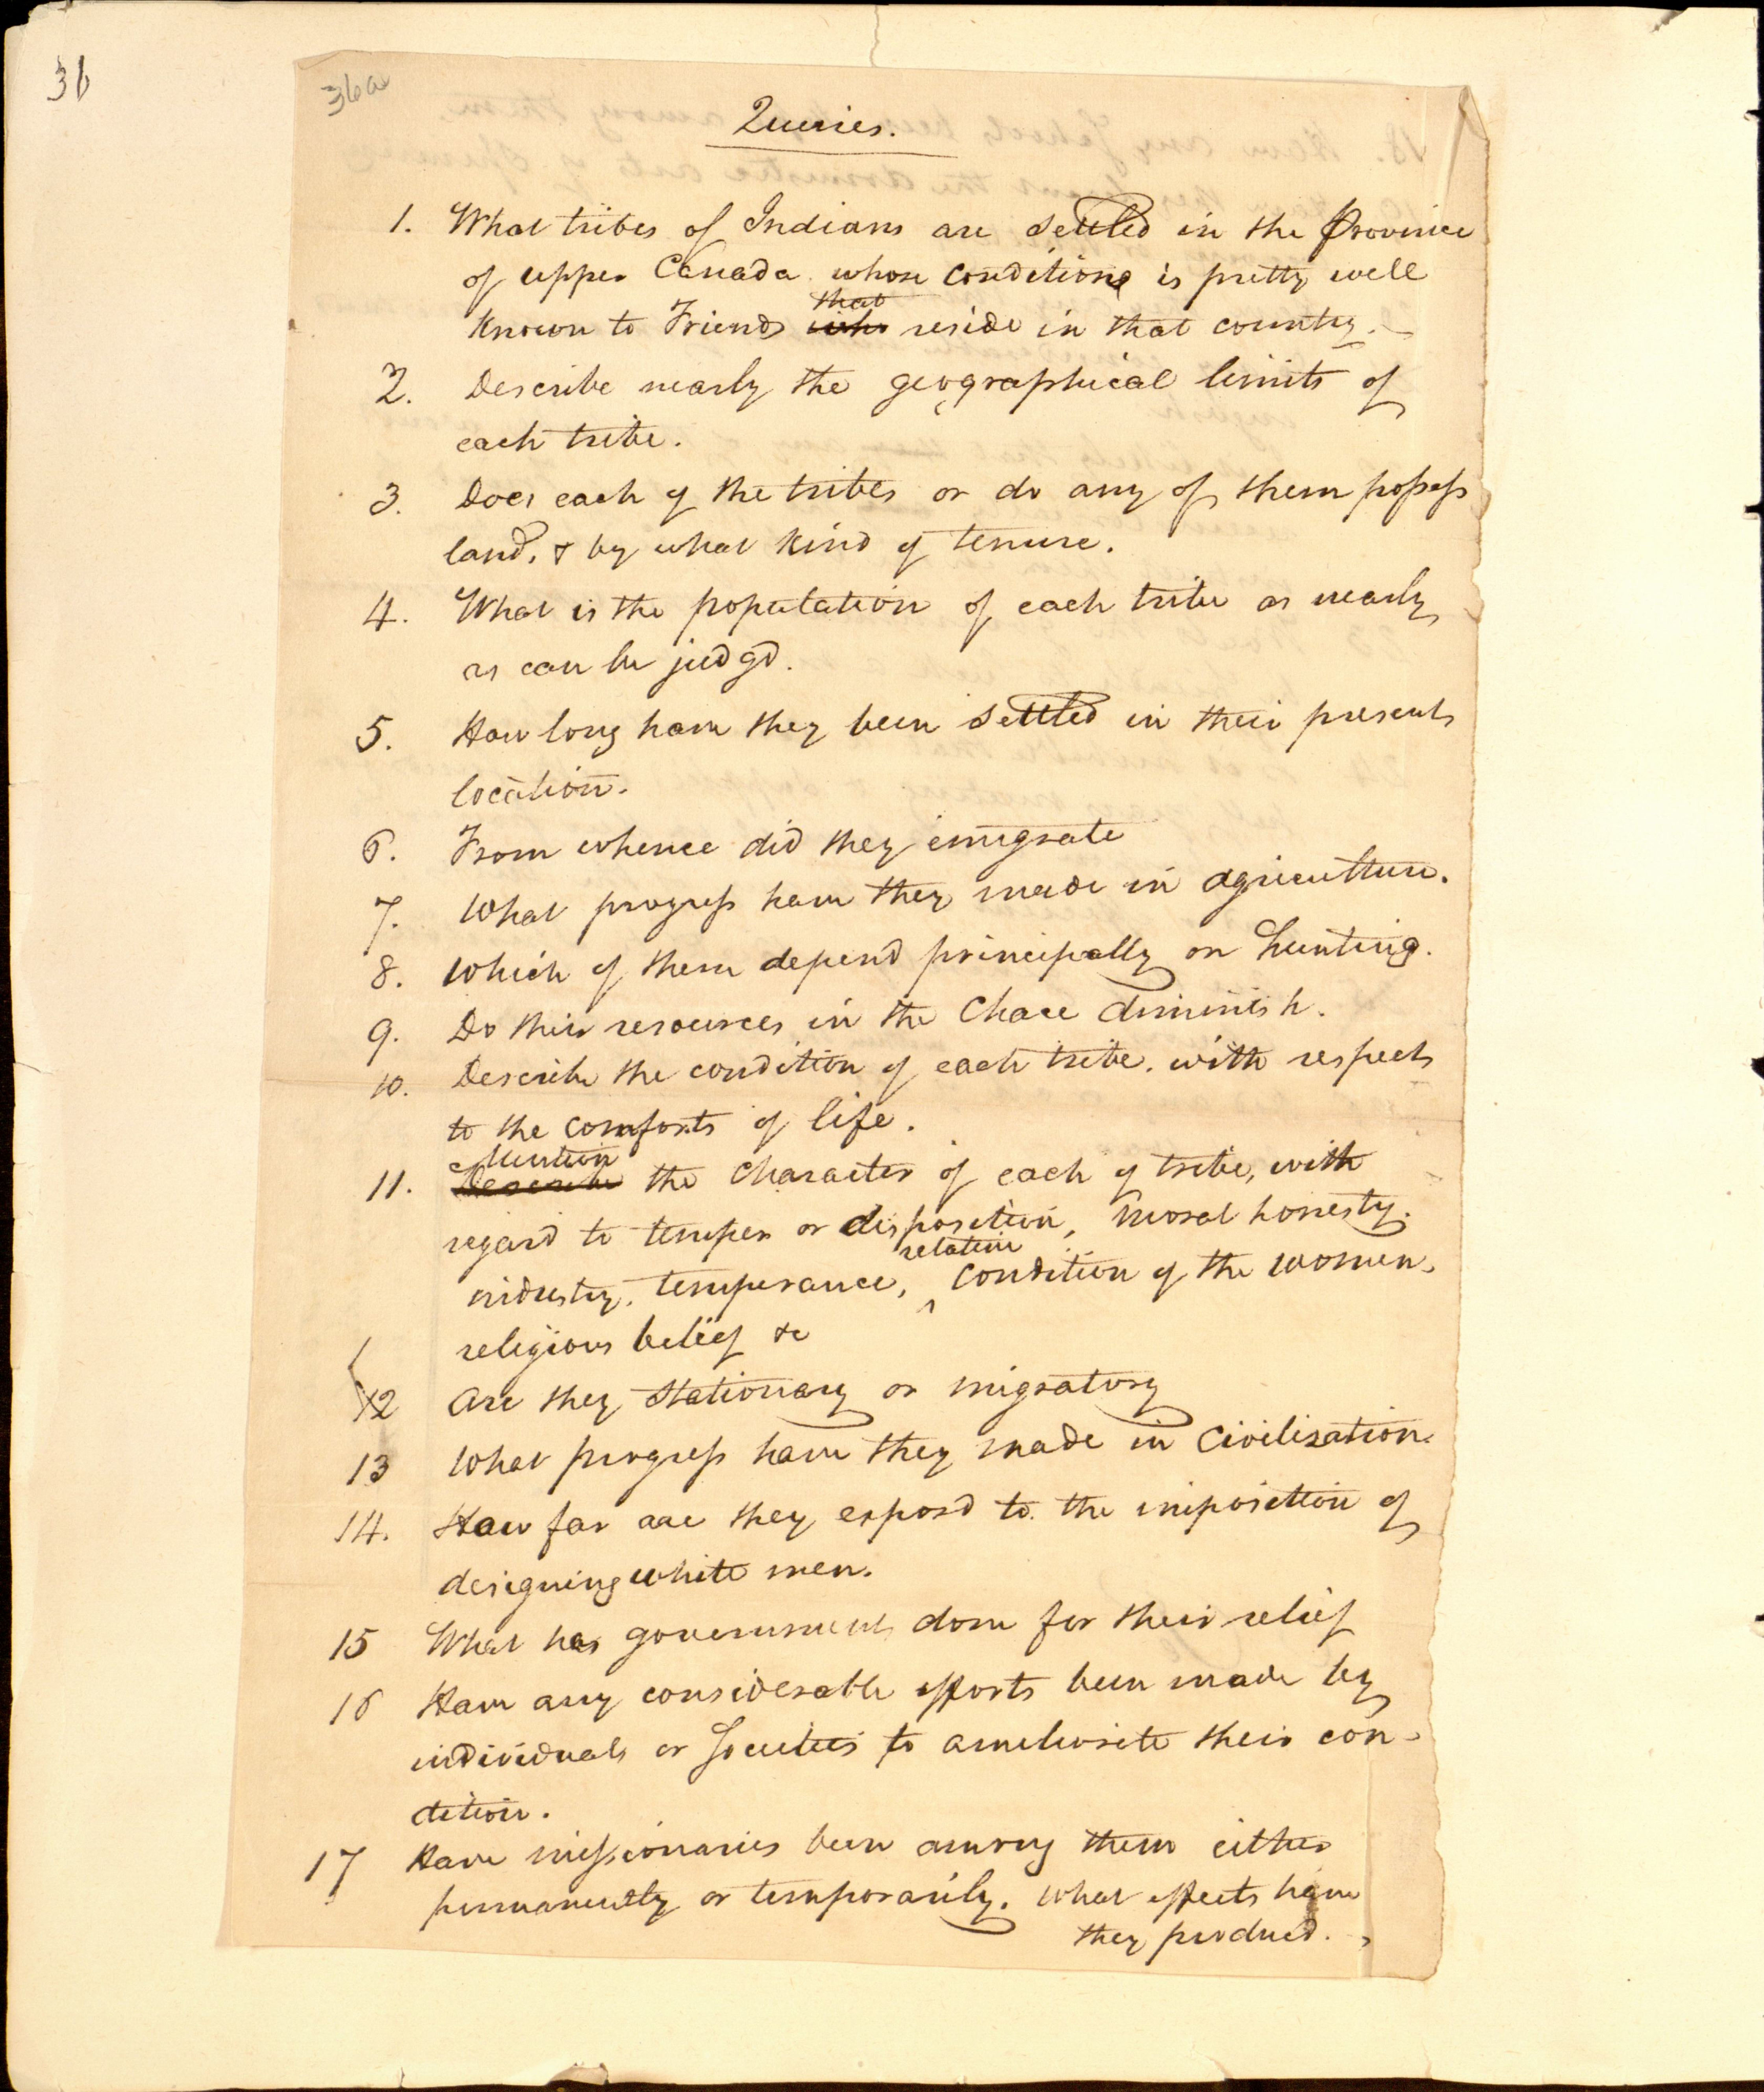 36
36a
Queries.
1. What tribes of Indians are settled in the Province
of upper Canada whose condition is pretty well
known to Friends who that reside in that country.
2. Describe nearly the geographical limits of
each tribe.
3. Does each of the tribes or do any of them possess
land, & by what kind of tenure.
4. What is the population of each tribe as nearly
as can be judgd.
5. How long have they been settled in their present
location.
6. From whence did they emigrate
7. What progress have they made in agriculture.
8. Which of them depend principally on hunting.
9. Do their resources in the Chace diminish.
10. Describe the condition of each tribe. with respect
to the comforts of life.
11. Describe Mention the Character of each of tribe, with
regard to temper or disposition, moral honesty.
industry, temperance, relative condition of the women,
religious belief &c
12 Are they Stationary or migratory
13 What progress have they made in Civilization.
14. How far are they exposd to the imposition of
designing white men.
15 What has government done for their relief
16 Have any considerable efforts been made by
individuals or Societies to ameliorate their con-
dition.
17 Have missionaries been among them either
permanently or temporarily. What effects have
they producd.